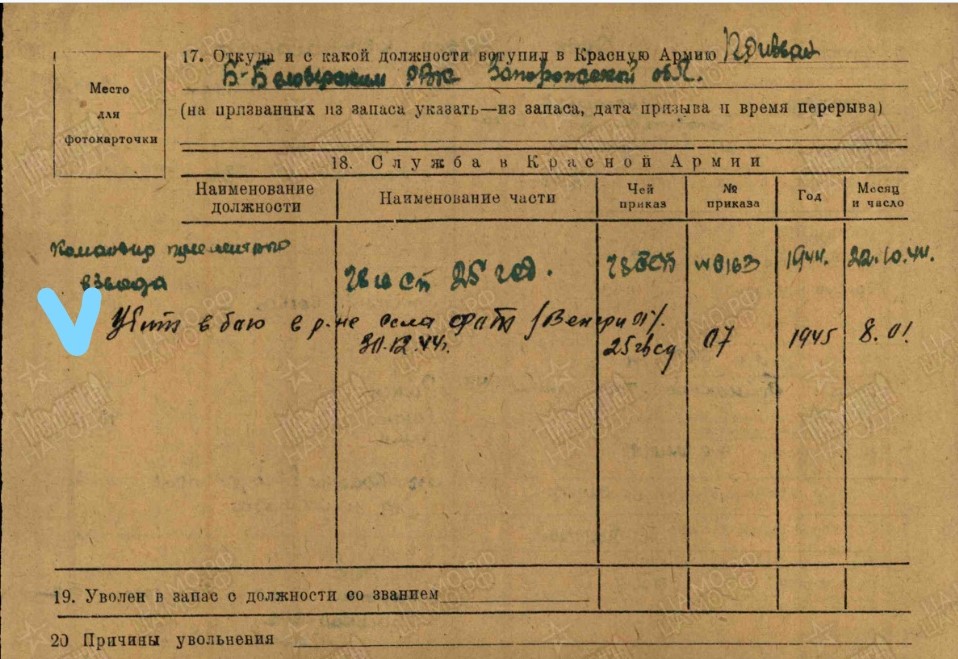 17. Откуда и с какой должности вступил в Красную Армию Призван
Б-Белозерским РВК Запорожской обл.
Место
для
фотокарточки
(на призванных из запаса указать—из запаса, дата призыва и время перерыва)
18. Служба в Красной Армии
Наименование должности Наименование части Чей приказ № приказа Год Месяц и число
Командир пулеметного
взвода 78 гв СП 25 1944. 22.10.44.
Убит в бою в р-не села (Венгрия).
30.12.44г. 25 гвсд 07 1945 8.01
19. Уволен в запас с должности со званием
20 Причины увольнения
ПАМЯТЬ НАРОДА
ЦАМО.РФ